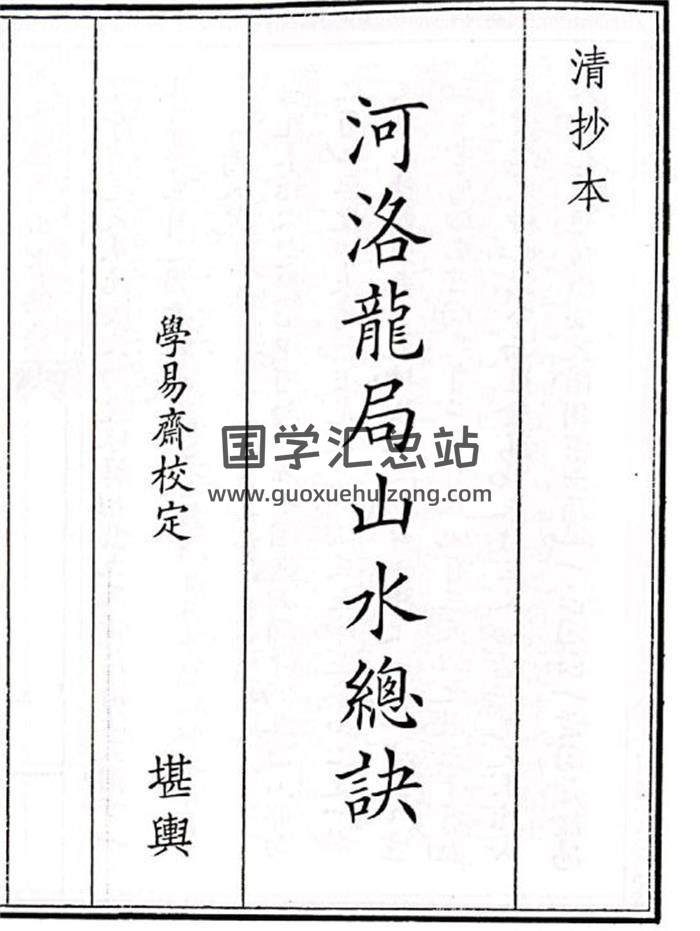 清抄本
河洛龍局山水總訣
學易齋校定
堪輿
国学汇总站
www.guoxuehuizong.com